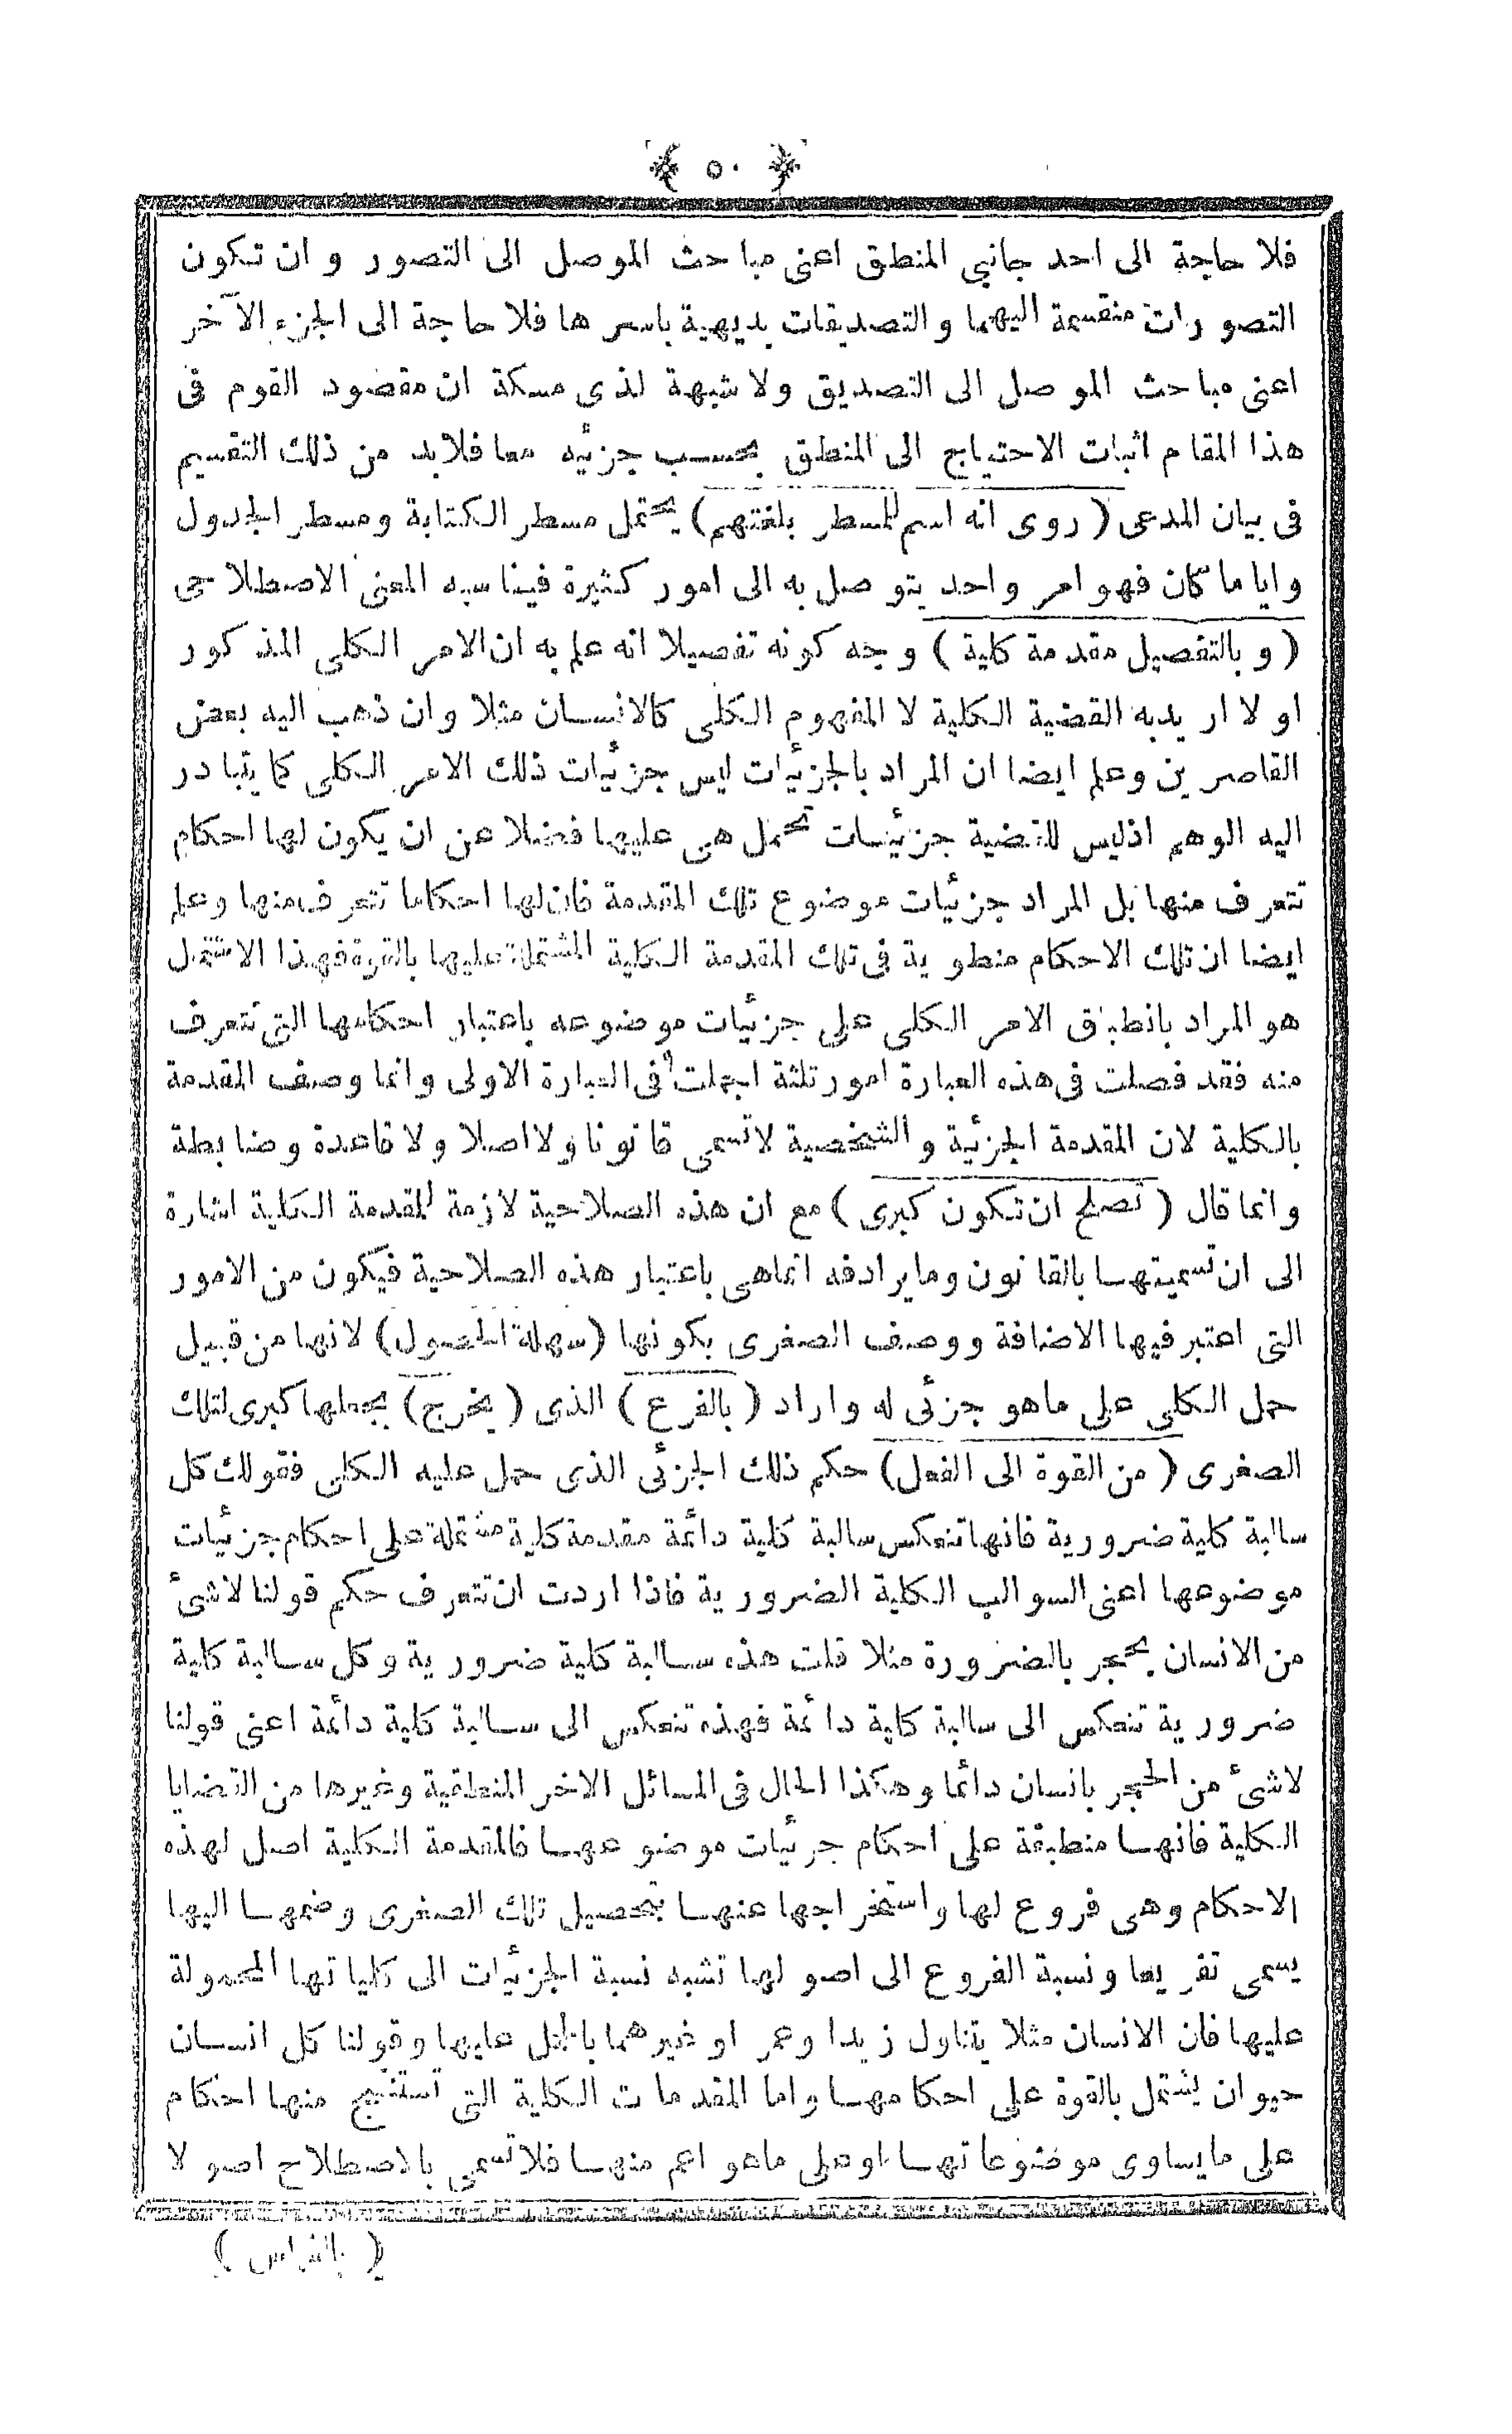 ٥٠
فلا حاجة الى احد جانبى المنطق اعنى مباحث الموصل الى التصور وان تكون
التصورات منقسمة اليهما والتصديقات بديهية باسرها فلا حاجة الى الجزء الآخر
اعنى مباحث الموصل الى التصديق ولا شبهة لذى مسكة ان مقصود القوم فى
هذا المقام اثبات الاحتياج الى المنطق بحسب جزئيه معا فلابد من ذلك التقسيم
فى بيان المدعى (روى انه اسم للمسطر بلغتهم) يحتمل مسطر الكتابة ومسطر الجدول
واياما كان فهو امر واحد يتوصل به الى امور كثيرة فيناسبه المعنى الاصطلاحى
(وبالتفصيل مقدمة كلية) وجه كونه تفصيلا انه علم به ان الامر الكلى المذكور
اولا اريد به القضية الكلية لا المفهوم الكلى كالانسان مثلا وان ذهب اليه بعض
القاصرين وعلم ايضا ان المراد بالجزئيات ليس جزئيات ذلك الامر الكلى كما يتبادر
اليه الوهم اذ ليس للقضية جزئيات تحمل هى عليها فضلا عن ان يكون لها احكام
تتعرف منها بل المراد جزئيات موضوع تلك المقدمة فان لها احكاما تتعرف منها وعلم
ايضا ان تلك الاحكام منطوية فى تلك المقدمة الكلية المشتملة عليها بالقوة فهذا الاشتمال
هو المراد بانطباق الامر الكلى على جزئيات موضوعه باعتبار احكامها التى تتعرف
منه فقد فصلت فى هذه العبارة امور ثلثة اجملت فى العبارة الاولى وانما وصف المقدمة
بالكلية لان المقدمة الجزئية والشخصية لا تسمى قانونا ولا اصلا ولا قاعدة وضابطة
وانما قال (تصلح ان تكون كبرى) مع ان هذه الصلاحية لازمة للمقدمة الكلية اشارة
الى ان تسميتها بالقانون وما يرادفه انما هى باعتبار هذه الصلاحية فيكون من الامور
التى اعتبر فيها الاضافة ووصف الصغرى بكونها (سهلة الحصول) لانها من قبيل
حمل الكلى على ما هو جزئى له واراد (بالفرع) الذى (يخرج) بجعلها كبرى لتلك
الصغرى (من القوة الى الفعل) حكم ذلك الجزئى الذى حمل عليه الكلى فقولك كل
سالبة كلية ضرورية فانها تنعكس سالبة كلية دائمة مقدمة كلية مشتملة على احكام جزئيات
موضوعها اعنى السوالب الكلية الضرورية فاذا اردت ان تتعرف حكم قولنا لا شئ
من الانسان بحجر بالضرورة مثلا قلت هذه سالبة كلية ضرورية وكل سالبة كلية
ضرورية تنعكس الى سالبة كلية دائمة فهذه تنعكس الى سالبة كلية دائمة اعنى قولنا
لا شئ من الحجر بانسان دائما وهكذا الحال فى المسائل الاخر المنطقية وغيرها من القضايا
الكلية فانها منطبقة على احكام جزئيات موضوعها فالمقدمة الكلية اصل لهذه
الاحكام وهى فروع لها واستخراجها عنها بتحصيل تلك الصغرى وضمها اليها
يسمى تفريعا ونسبة الفروع الى اصولها تشبه نسبة الجزئيات الى كلياتها المحمولة
عليها فان الانسان مثلا يتناول زيدا وعمر او غيرهما بالحمل عليها وقولنا كل انسان
حيوان يشتمل بالقوة على احكامها واما المقدمات الكلية التى تستنتج منها احكام
على ما يساوى موضوعاتها او على ما هو اعم منها فلا تسمى بالاصطلاح اصولا
(بالقياس)